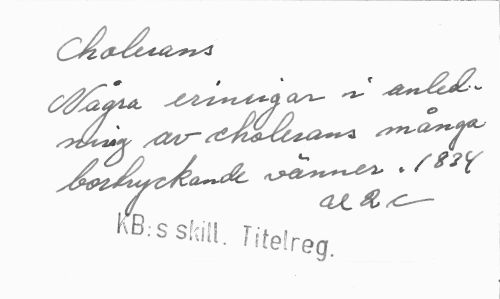 Cholerans
Några erinrigar i anled-
ning av cholerans många
bortryckande vänner. 1834
KB:s skill. Titelreg.